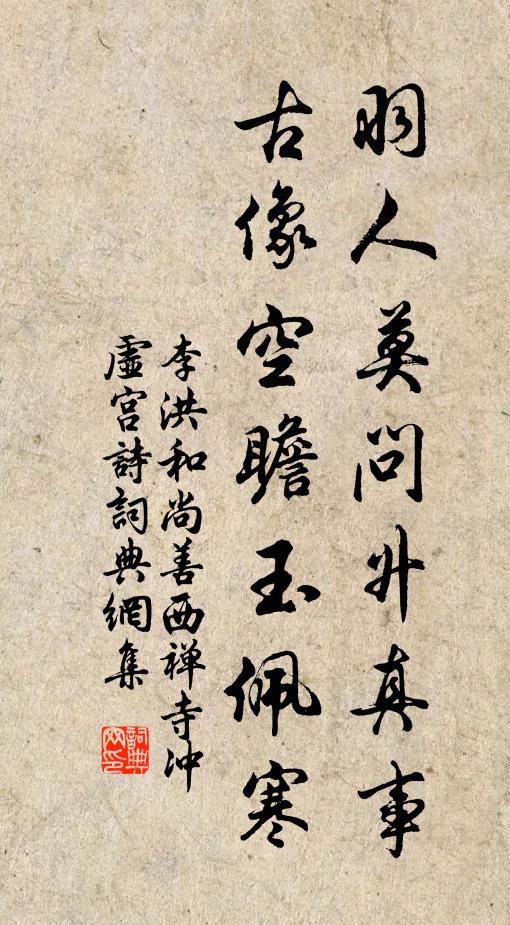 羽人莫問升真事
古像空瞻玉佩寒
李洪和尚善西禅寺冲
虛宫詩詞典網集
詞典
网印